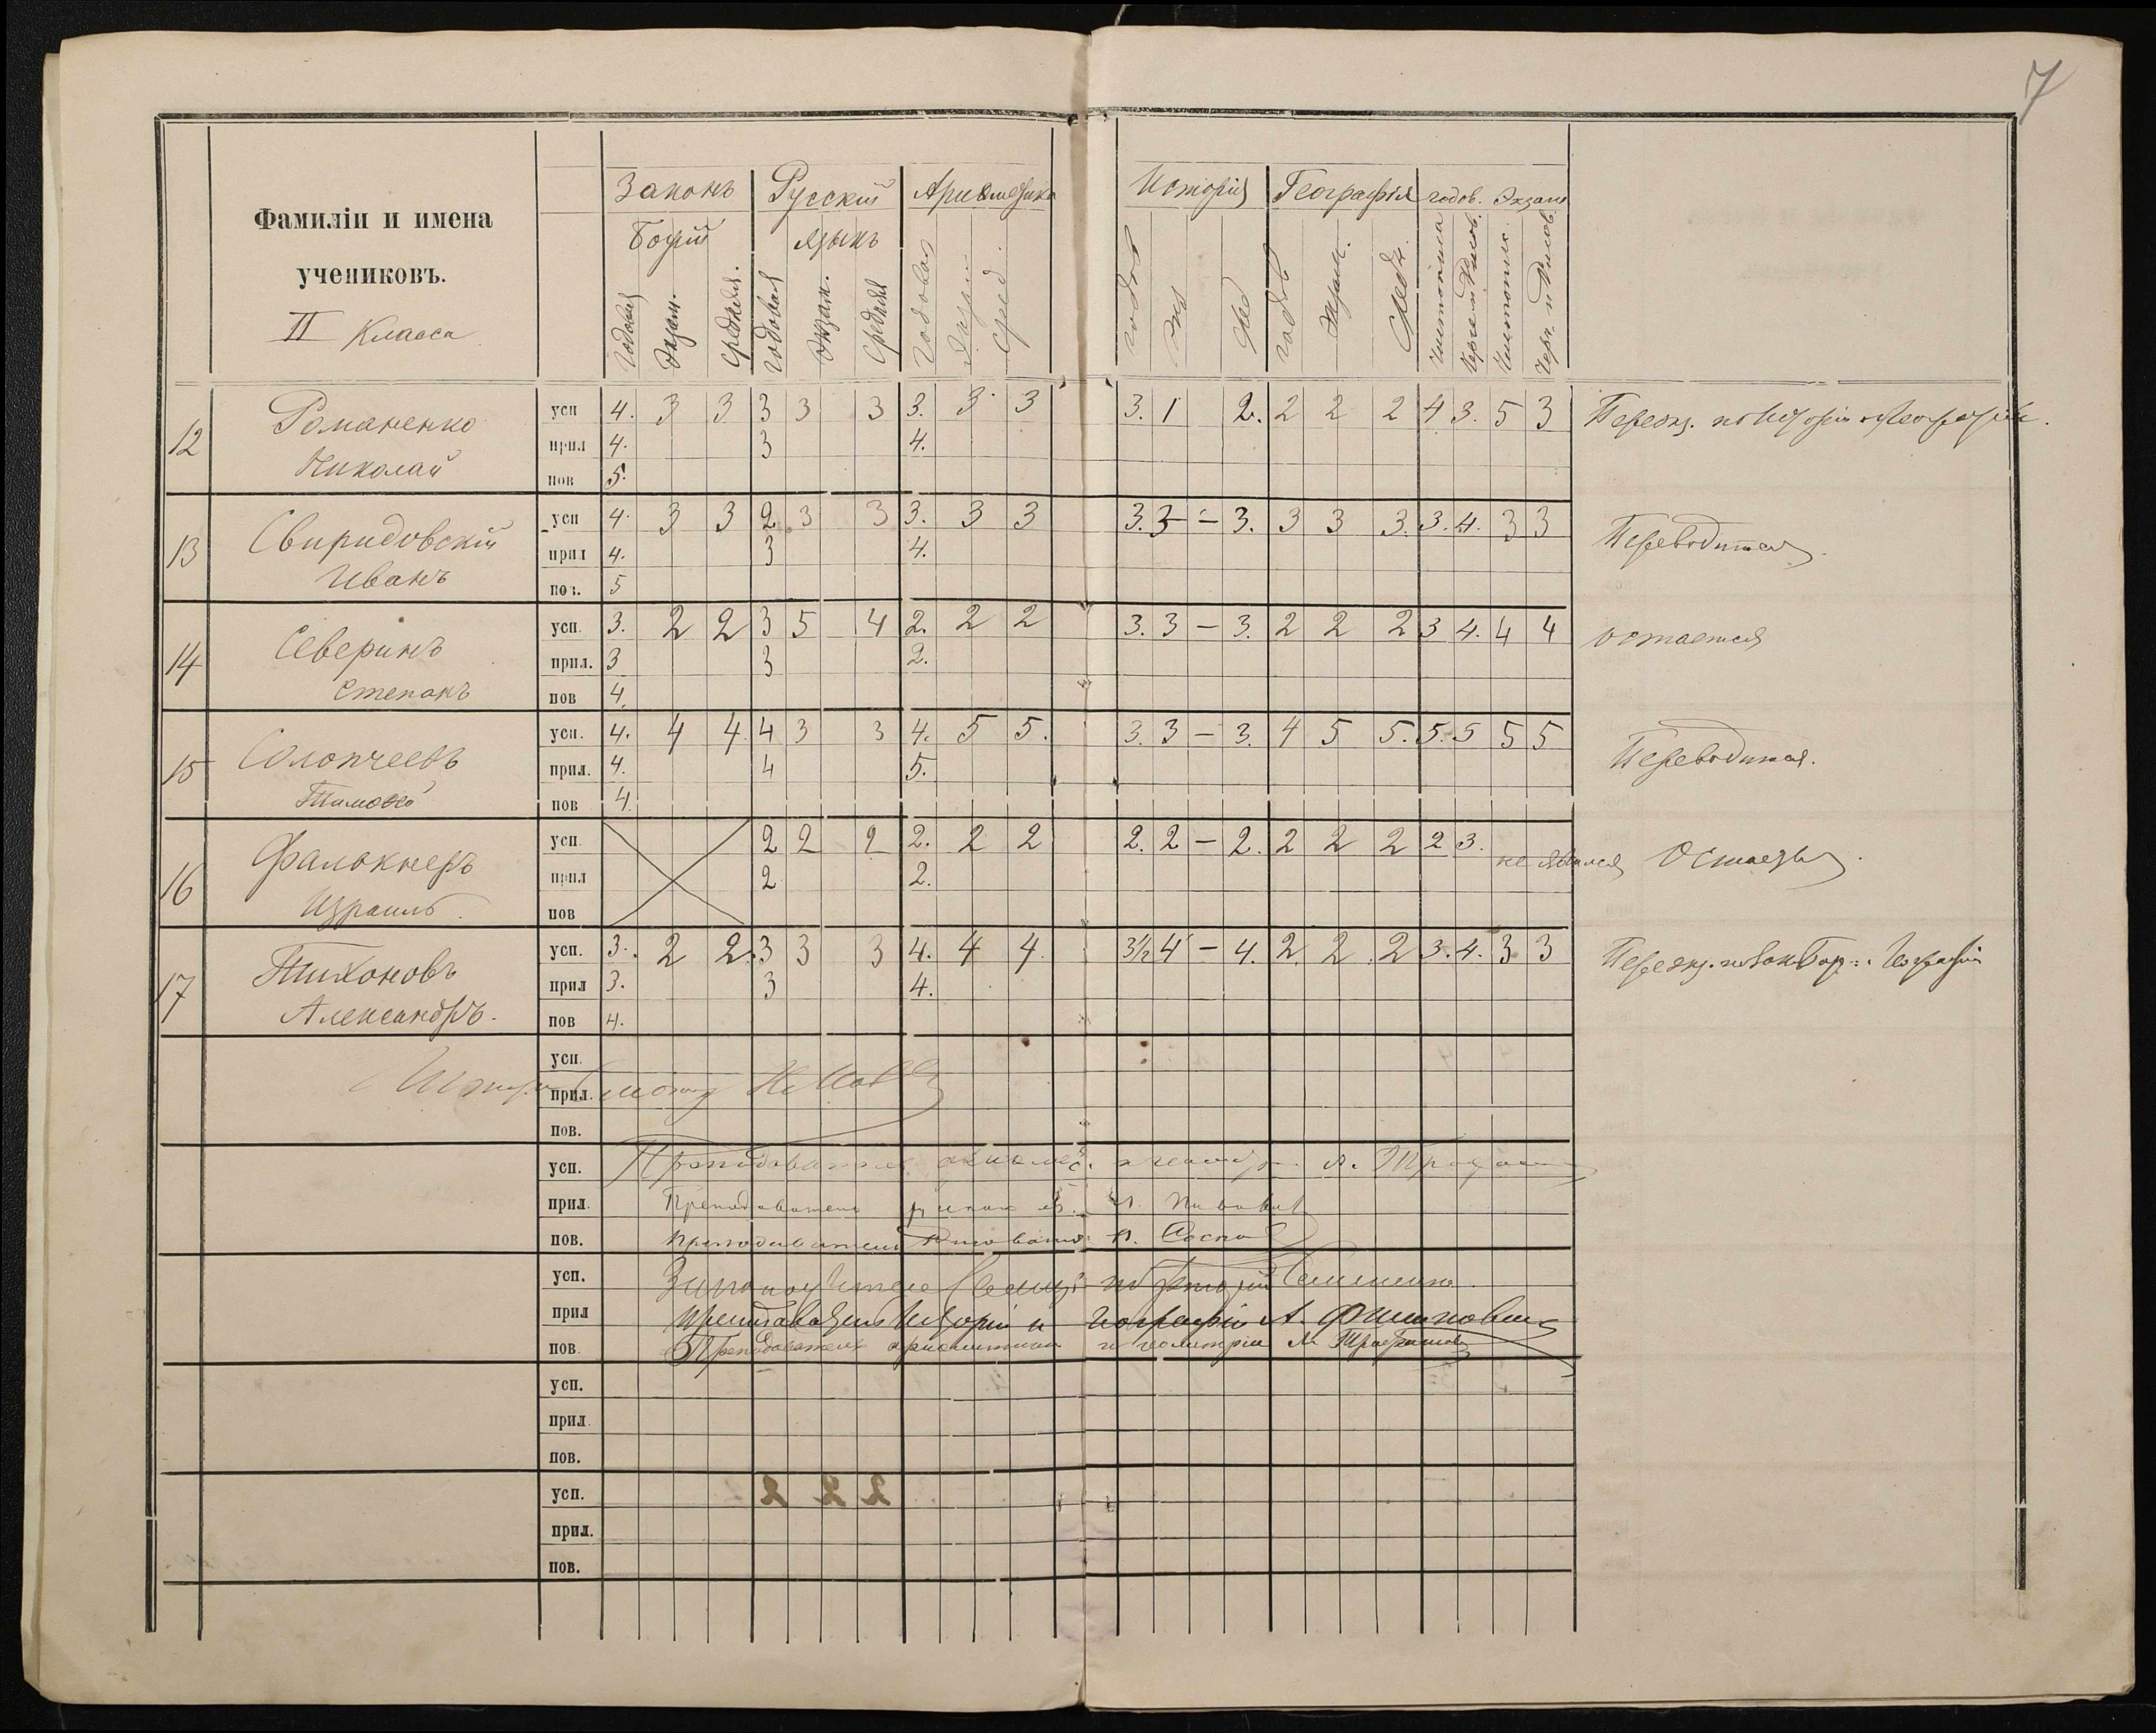 7
Законъ Русскій Ариѳметика Исторія Географія годов. Экзам
Фамиліи и имена
Божій языкъ
учениковъ.
II Класса
Годовая Экзам. Средняя. Годовая Экзам. Средняя Годовая Экзам Сред. годов Экз Сре годов Экзам. Средн. Чистописа Черч. и Рисов. Чистопис. Черч. и Рисов
12 Романенко усп 4. 3 3 3 3 3 3. 3 3 3. 1 2. 2 2 2 4 3. 5 3 Переэкз. по Исторіи и Географіи.
Николай прил 4. 3 4.
пов 5.
13 Свиридовскій усп 4. 3 3 2 3 3 3. 3 3 3. 3 – 3. 3 3 3. 3. 4. 3 3 Переводится.
Иванъ прил 4. 3 4.
пов. 5
14 Северинъ усп. 3. 2 2 3 5 4 2. 2 2 3. 3 – 3. 2 2 2 3 4. 4 4 остается
Степанъ прил. 3 3 2.
пов 4.
15 Солопчеевъ усп. 4. 4 4 4 3 3 4. 5 5. 3. 3 – 3. 4 5 5. 5. 5 5 5 Переводится.
Тимоѳей прил. 4. 4 5.
пов 4.
16 Фалькнеръ усп. 2 2 2 2. 2 2 2. 2 – 2. 2 2 2 2 3. не явился Остается.
Израиль. прил 2 2.
пов
17 Тихоновъ усп. 3. 2 2. 3 3 3 4. 4 4. 3½ 4 – 4. 2. 2. 2 3. 4. 3 3 Переэкз. по Зак. Бож. и Географіи
Александръ. прил 3. 3 4.
пов 4.
усп.
прил.
пов.
усп. Преподаватель
прил. Преподаватель русскаго яз.
пов. Преподаватель Рисованія
усп. Законоучитель Свящ.
прил Преподаватель Исторіи и Географіи А.
пов. Преподаватель ариѳметики и геометріи
усп.
прил.
пов.
усп. 2 2 2
прил.
пов.